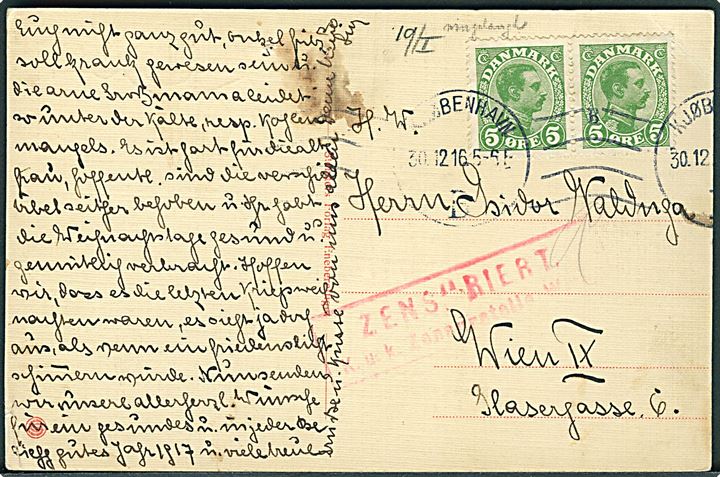 Eug nicht ganz gut, onkel
soll krank gewesen sein u.
die arme Großmama leidet
so unter der Kälte, resp. Kohlen
mangels. Es ist hart für die alte
Frau, hoffentl. sind die verschied.
Übel seither behoben u. Ihr habt
die Weihnachtstage gesund u.
gemütlich verbracht. Hoffen
wir, dass es die letzten Kriegsweih
nachten waren, es sieht ja doch
aus, als wenn ein Friedenslicht
schimmern würde. Nun senden
wir unsere allerherzl. Wünsche
für ein gesundes u. in jeder Be
ziehg gutes Jahr 1917 u. viele treue
Grüsse u. Küsse von uns allen
19/I
DANMARK
5 ØRE 5
DANMARK
5 ØRE 5
KJØBENHAVN
30.12.16. 5-6E
B
KJØB
30.12
H. W.
Herrn Isidor Waldnga
ZENSURIERT
K. u. k. Zensurstelle W
Wien IX
Glasergasse 6.